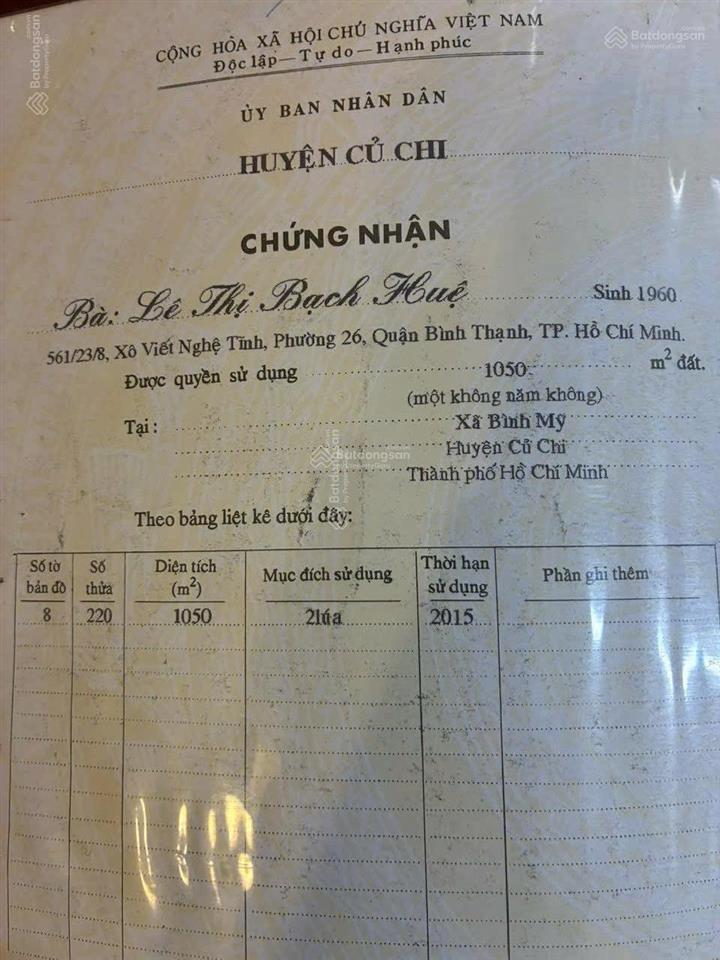 CỘNG HÒA XÃ HỘI CHỦ NGHĨA VIỆT NAM
Độc lập — Tự do — Hạnh phúc
ỦY BAN NHÂN DÂN
HUYỆN CỦ CHI
CHỨNG NHẬN
Bà: Lê Thị Bạch Huệ Sinh 1960
561/23/8, Xô Viết Nghệ Tĩnh, Phường 26, Quận Bình Thạnh, TP. Hồ Chí Minh.
Được quyền sử dụng 1050 m² đất.
(một không năm không)
Tại : Xã Bình Mỹ
Huyện Củ Chi
Thành phố Hồ Chí Minh
Theo bảng liệt kê dưới đây:
Số tờ bản đồ Số thửa Diện tích (m²) Mục đích sử dụng Thời hạn sử dụng Phần ghi thêm
8 220 1050 2lúa 2015
Batdongsan
by PropertyGuru
Batdongsan
Batdongsan
by PropertyGuru
Batdongsan